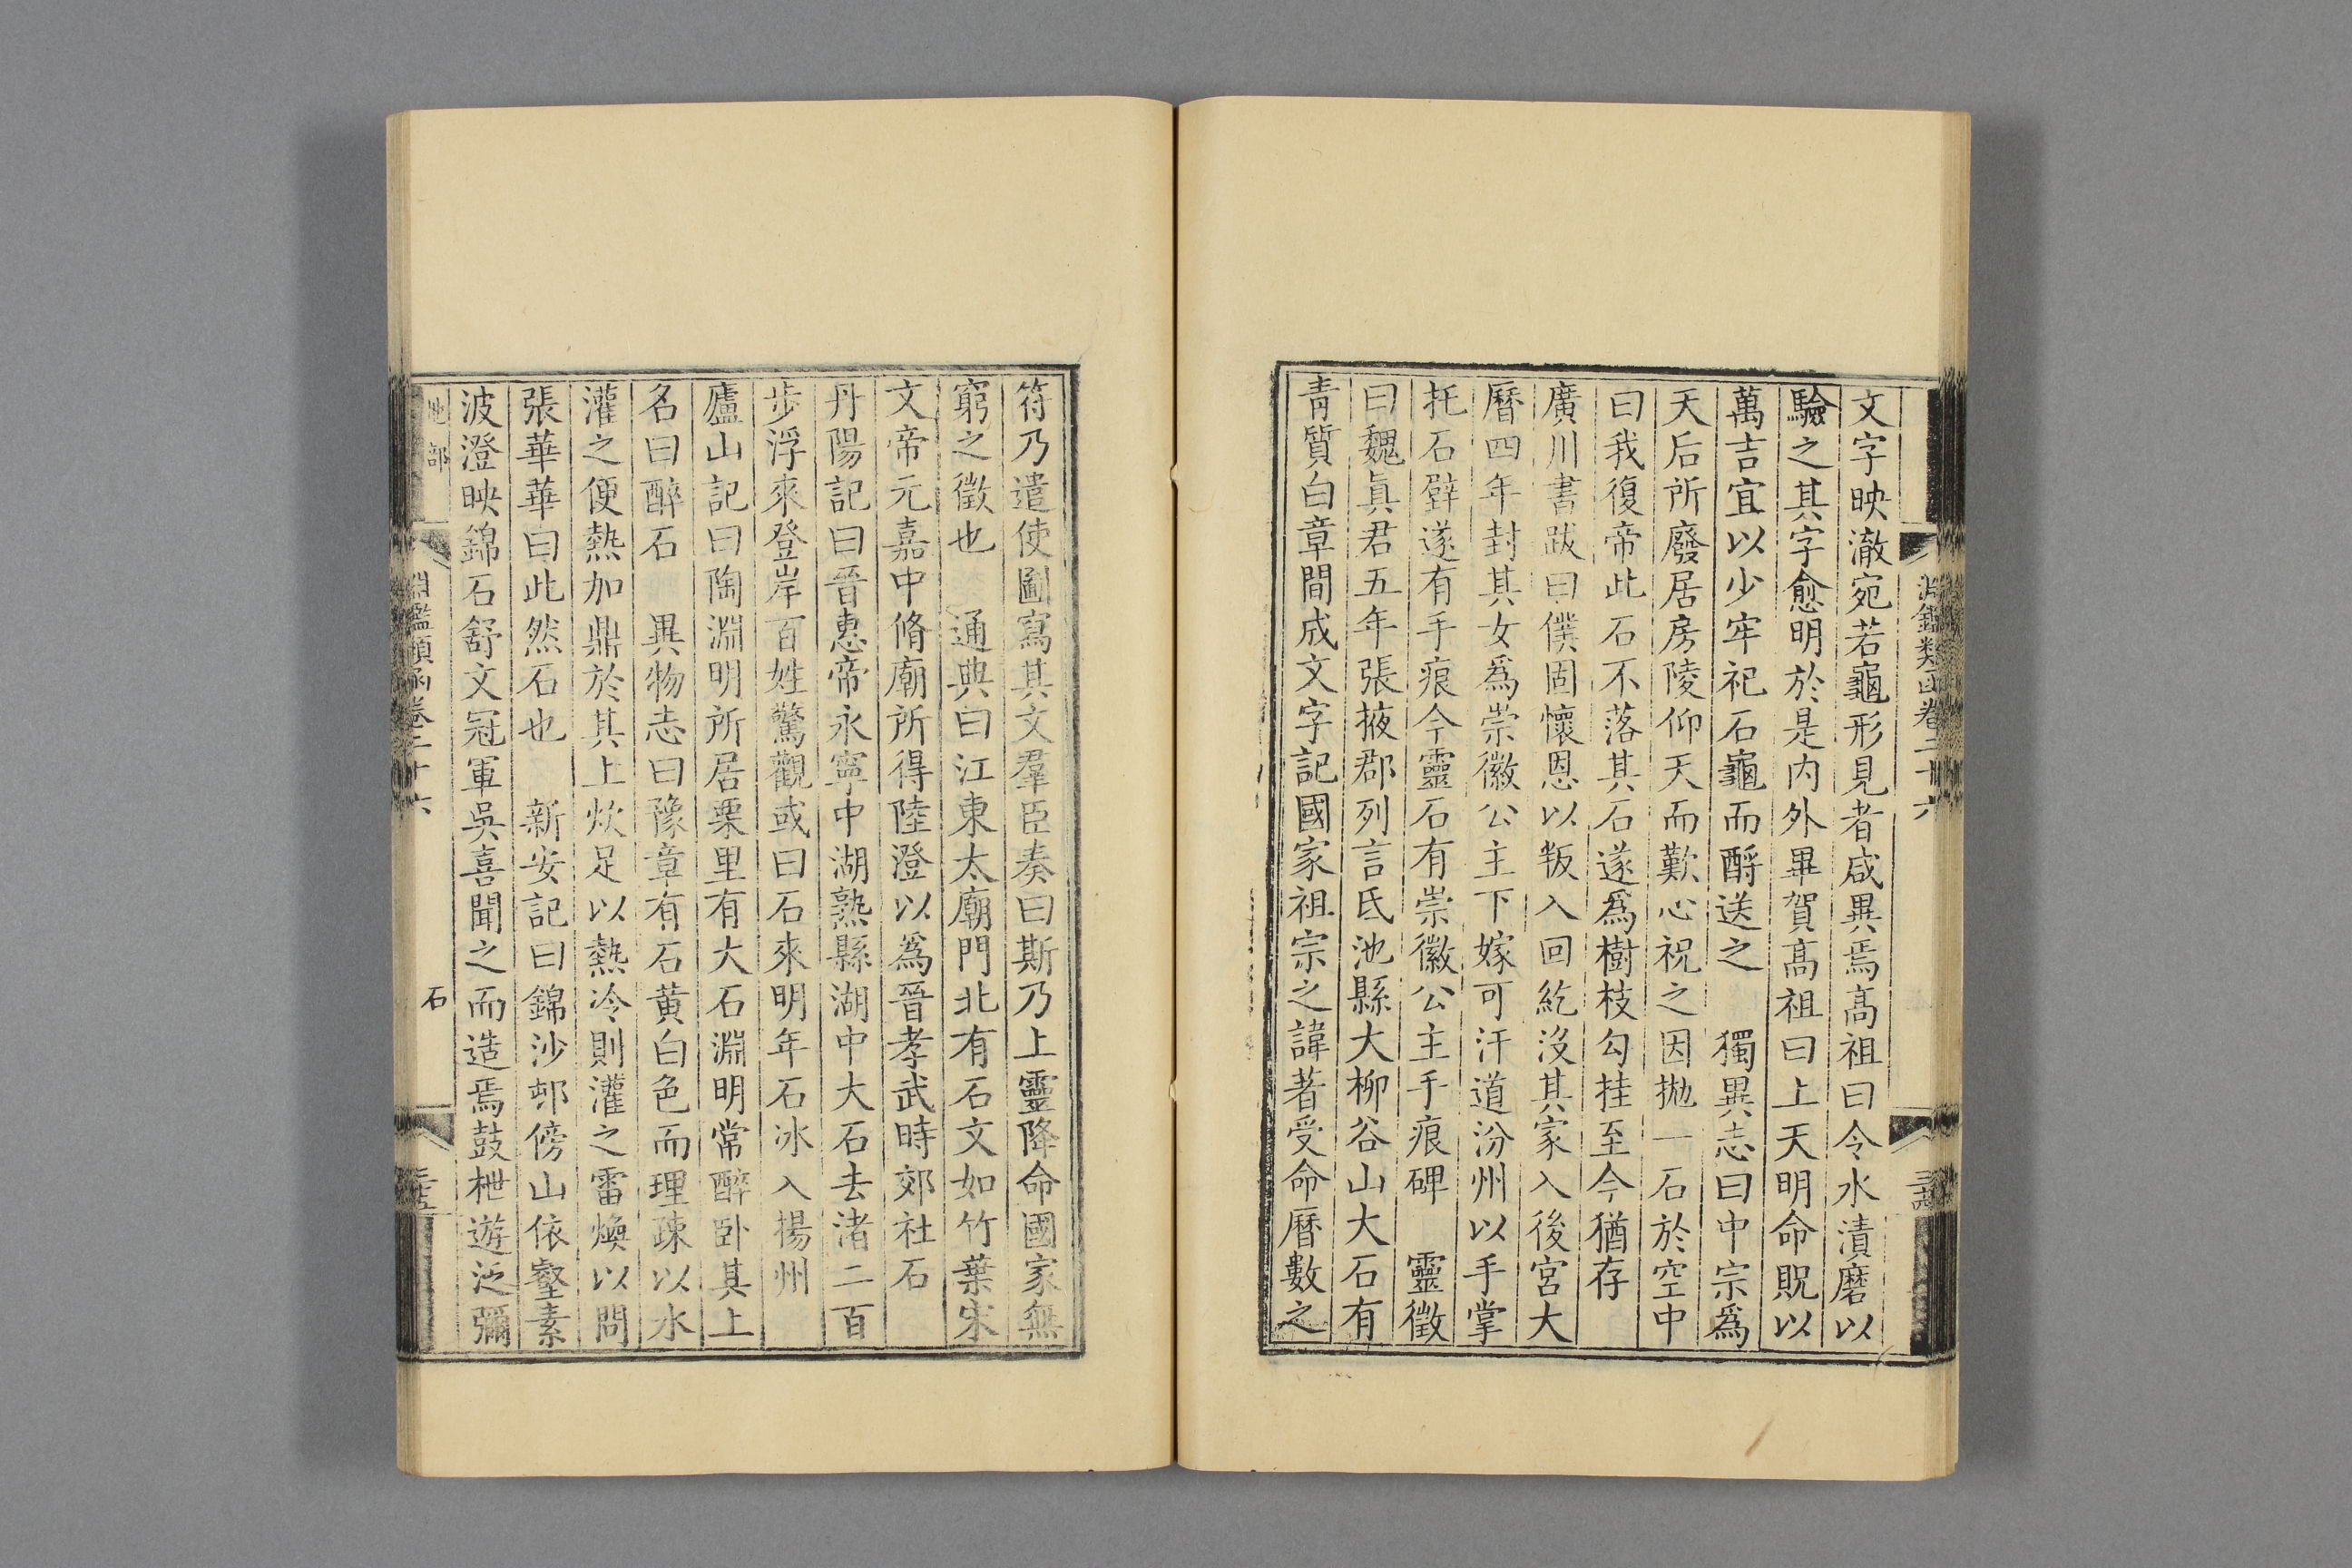 淵鑑類函卷二十六
文字映澈宛若龜形見者咸異焉高祖曰令水漬磨以
驗之其字愈明於是內外畢賀高祖曰上天明命貺以
萬吉宜以少牢祀石龜而酹送之　獨異志曰中宗爲
天后所廢居房陵仰天而歎心祝之因拋一石於空中
曰我復帝此石不落其石遂爲樹枝勾挂至今猶存
廣川書跋曰僕固懷恩以叛入回紇沒其家入後宮大
曆四年封其女爲崇徽公主下嫁可汗道汾州以手掌
托石壁遂有手痕今靈石有崇徽公主手痕碑　靈徵
曰魏眞君五年張掖郡列言氐池縣大柳谷山大石有
青質白章間成文字記國家祖宗之諱著受命曆數之
符乃遣使圖寫其文羣臣奏曰斯乃上靈降命國家無
窮之徵也　通典曰江東太廟門北有石文如竹葉宋
文帝元嘉中脩廟所得陸澄以爲晉孝武時郊社石
丹陽記曰晉惠帝永寧中湖熟縣湖中大石去渚二百
步浮來登岸百姓驚觀或曰石來明年石冰入揚州
廬山記曰陶淵明所居栗里有大石淵明常醉卧其上
名曰醉石　異物志曰豫章有石黃白色而理疎以水
灌之便熱加鼎於其上炊足以熱冷則灌之雷煥以問
張華華曰此然石也　新安記曰錦沙邨傍山依壑素
波澄映錦石舒文冠軍吳喜聞之而造焉鼓枻遊泛彌
地部
淵鑑類函卷二十六
石